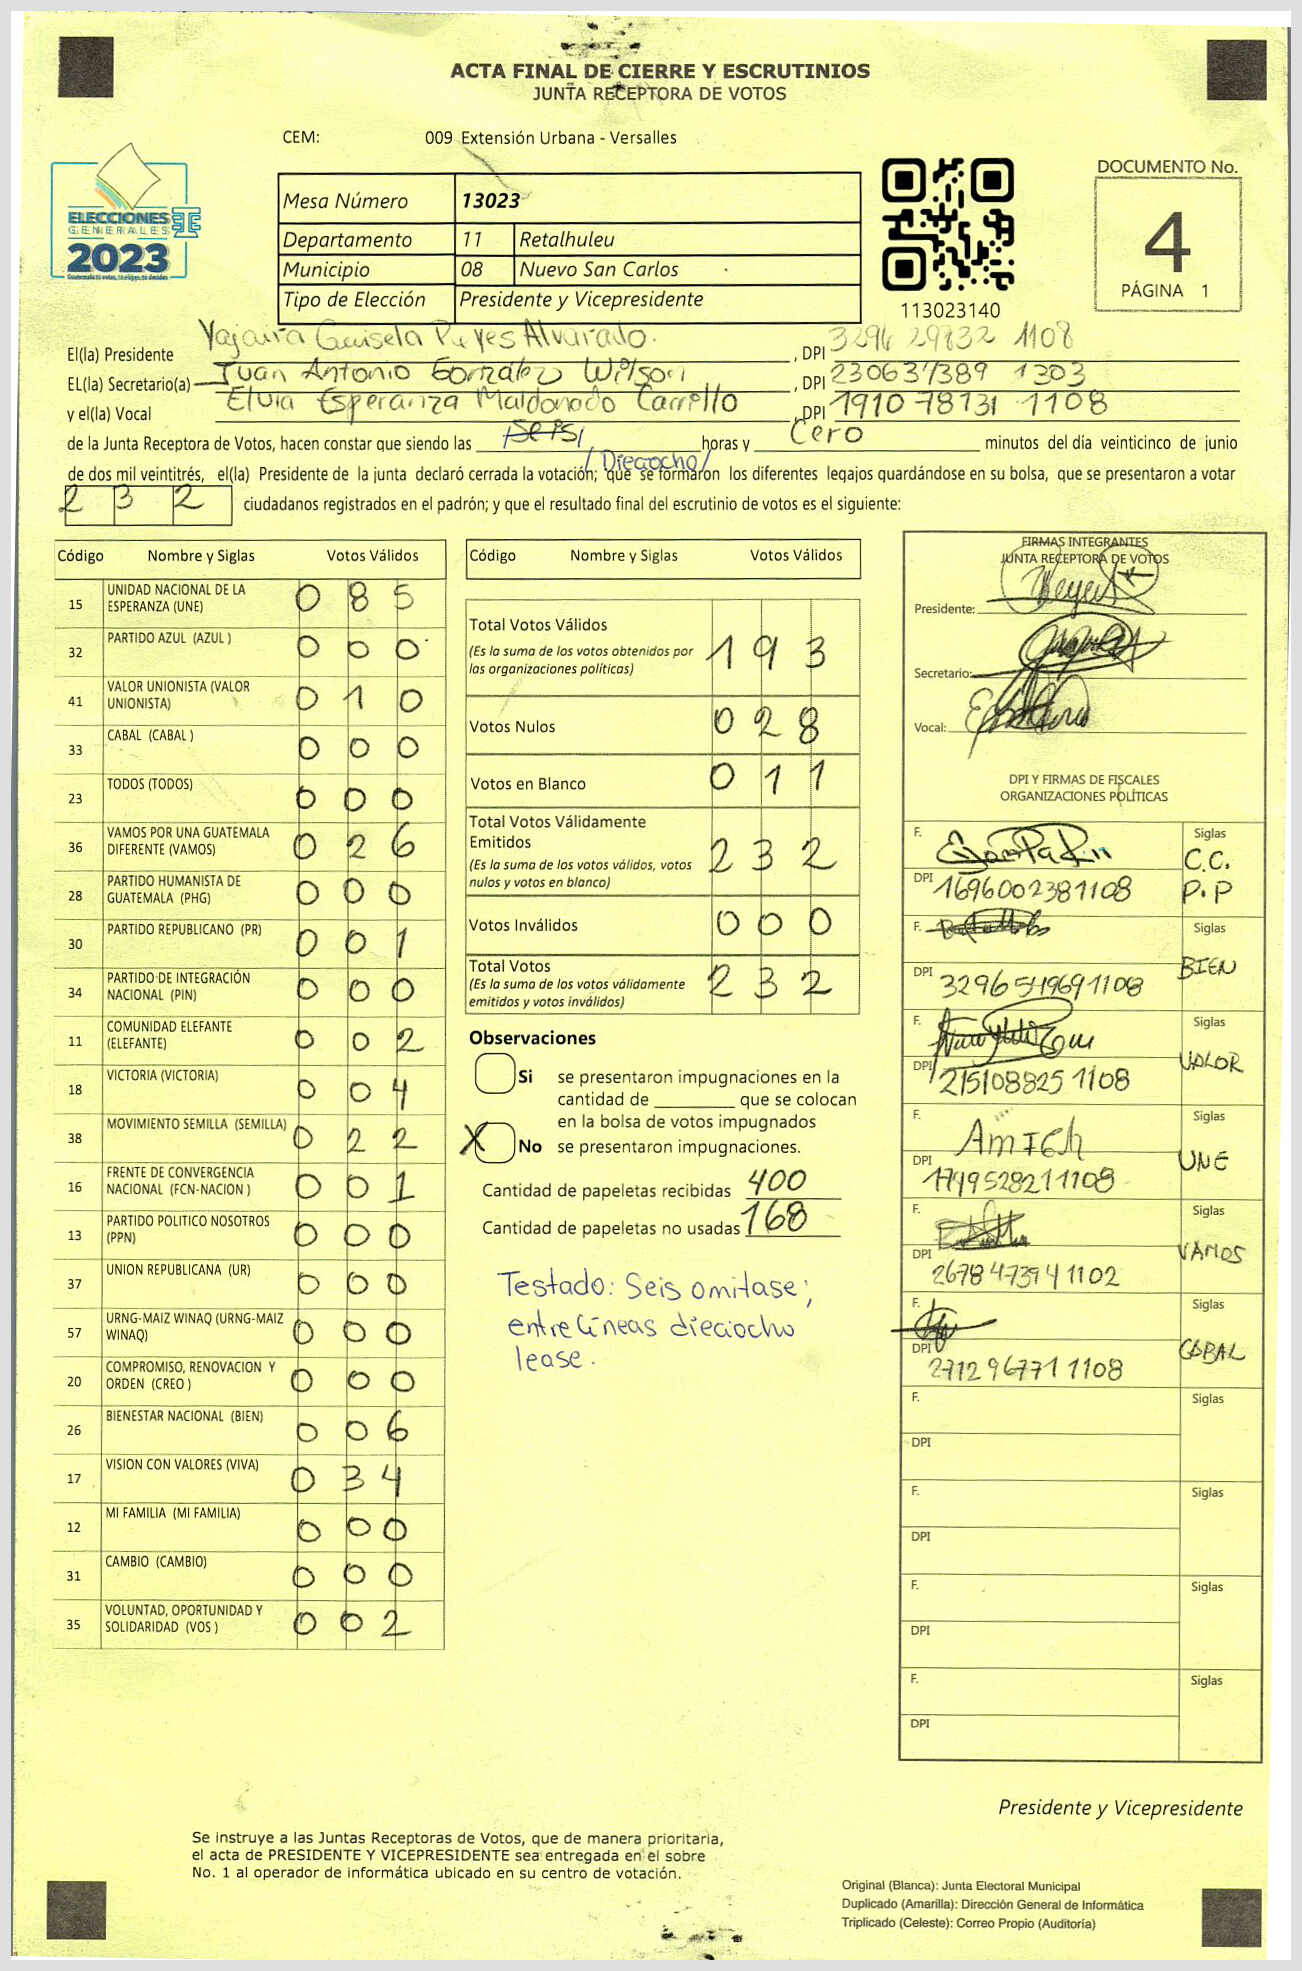 ACTA FINAL DE CIERRE Y ESCRUTINIOS
JUNTA RECEPTORA DE VOTOS
CEM: 009 Extensión Urbana - Versalles
ELECCIONES
GENERALES
2023
Mesa Número 13023
Departamento 11 Retalhuleu
Municipio 08 Nuevo San Carlos
Tipo de Elección Presidente y Vicepresidente
113023140
DOCUMENTO No.
4
PÁGINA 1
El(la) Presidente Yajaira Reyes Alvarado. , DPI 1108
EL(la) Secretario(a) Juan Antonio González Wilson , DPI 230637389 1303
y el(la) Vocal Elvia Esperanza Maldonado Carrillo , DPI 1910 78131 1108
de la Junta Receptora de Votos, hacen constar que siendo las seis horas y Cero minutos del día veinticinco de junio
/Dieciocho/
de dos mil veintitrés, el(la) Presidente de la junta declaró cerrada la votación; que se formaron los diferentes legajos quardándose en su bolsa, que se presentaron a votar
232 ciudadanos registrados en el padrón; y que el resultado final del escrutinio de votos es el siguiente:
Código Nombre y Siglas Votos Válidos
15 UNIDAD NACIONAL DE LA ESPERANZA (UNE) 0 8 5
32 PARTIDO AZUL (AZUL ) 0 0 0
41 VALOR UNIONISTA (VALOR UNIONISTA) 0 1 0
33 CABAL (CABAL ) 0 0 0
23 TODOS (TODOS) 0 0 0
36 VAMOS POR UNA GUATEMALA DIFERENTE (VAMOS) 0 2 6
28 PARTIDO HUMANISTA DE GUATEMALA (PHG) 0 0 0
30 PARTIDO REPUBLICANO (PR) 0 0 1
34 PARTIDO DE INTEGRACIÓN NACIONAL (PIN) 0 0 0
11 COMUNIDAD ELEFANTE (ELEFANTE) 0 0 2
18 VICTORIA (VICTORIA) 0 0 4
38 MOVIMIENTO SEMILLA (SEMILLA) 0 2 2
16 FRENTE DE CONVERGENCIA NACIONAL (FCN-NACION ) 0 0 1
13 PARTIDO POLITICO NOSOTROS (PPN) 0 0 0
37 UNION REPUBLICANA (UR) 0 0 0
57 URNG-MAIZ WINAQ (URNG-MAIZ WINAQ) 0 0 0
20 COMPROMISO, RENOVACION Y ORDEN (CREO ) 0 0 0
26 BIENESTAR NACIONAL (BIEN) 0 0 6
17 VISION CON VALORES (VIVA) 0 3 4
12 MI FAMILIA (MI FAMILIA) 0 0 0
31 CAMBIO (CAMBIO) 0 0 0
35 VOLUNTAD, OPORTUNIDAD Y SOLIDARIDAD (VOS ) 0 0 2
Código Nombre y Siglas Votos Válidos
Total Votos Válidos 1 9 3
(Es la suma de los votos obtenidos por
las organizaciones políticas)
Votos Nulos 0 2 8
Votos en Blanco 0 1 1
Total Votos Válidamente
Emitidos 2 3 2
(Es la suma de los votos válidos, votos
nulos y votos en blanco)
Votos Inválidos 0 0 0
Total Votos 2 3 2
(Es la suma de los votos válidamente
emitidos y votos inválidos)
Observaciones
Si se presentaron impugnaciones en la
cantidad de ________ que se colocan
en la bolsa de votos impugnados
X No se presentaron impugnaciones.
Cantidad de papeletas recibidas 400
Cantidad de papeletas no usadas 168
Testado: Seis omitase;
entre líneas dieciocho
lease.
FIRMAS INTEGRANTES
JUNTA RECEPTORA DE VOTOS
Presidente:
Secretario:
Vocal:
DPI Y FIRMAS DE FISCALES
ORGANIZACIONES POLÍTICAS
F. Siglas C.C.
DPI 1696002381108 P.P
F. Siglas
DPI 3296549691108 BIEN
F. Siglas
DPI 215108825 1108 VALOR
F. Siglas
DPI 1749528211108 UNE
F. Siglas
DPI 2678473941102 VAMOS
F. Siglas
DPI 2712967711108 CABAL
F. Siglas
DPI
F. Siglas
DPI
F. Siglas
DPI
F. Siglas
DPI
Presidente y Vicepresidente
Se instruye a las Juntas Receptoras de Votos, que de manera prioritaria,
el acta de PRESIDENTE Y VICEPRESIDENTE sea entregada en el sobre
No. 1 al operador de informática ubicado en su centro de votación.
Original (Blanca): Junta Electoral Municipal
Duplicado (Amarilla): Dirección General de Informática
Triplicado (Celeste): Correo Propio (Auditoría)